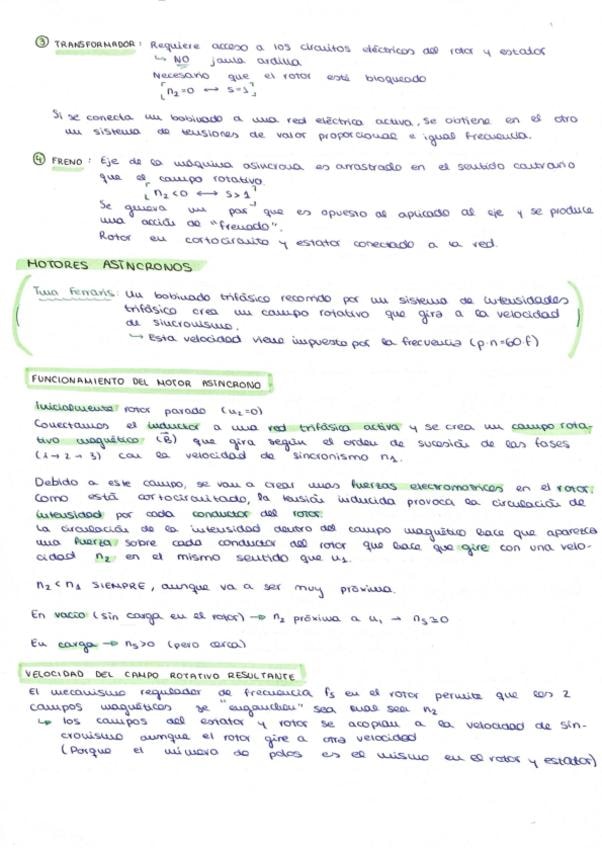 ③ TRANSFORMADOR: Requiere acceso a los circuitos eléctricos del rotor y estator
↳ NO jaula ardilla
Necesario que el rotor esté bloqueado
[n₂=0 ↔ s=1]
Si se conecta un bobinado a una red eléctrica activa, se obtiene en el otro
un sistema de tensiones de valor proporcional e igual frecuencia.
④ FRENO: Eje de la máquina asíncrona es arrastrado en el sentido contrario
que el campo rotativo.
[n₂<0 ↔ s>1]
Se genera un par que es opuesto al aplicado al eje y se produce
una acción de "frenado".
Rotor en cortocircuito y estator conectado a la red.
MOTORES ASÍNCRONOS
Tma Ferraris: Un bobinado trifásico recorrido por un sistema de intensidades
trifásico crea un campo rotativo que gira a la velocidad
de sincronismo.
↳ Esta velocidad viene impuesto por la frecuencia (p·n=60·f)
FUNCIONAMIENTO DEL MOTOR ASÍNCRONO
Inicialmente rotor parado (n₂=0)
Conectamos el inductor a una red trifásica activa y se crea un campo rota-
tivo magnético (B⃗) que gira según el orden de sucesión de las fases
(1→2→3) con la velocidad de sincronismo n₁.
Debido a este campo, se van a crear unas fuerzas electromotrices en el rotor.
Como está cortocircuitado, la tensión inducida provoca la circulación de
intensidad por cada conductor del rotor.
La circulación de la intensidad dentro del campo magnético hace que aparezca
una fuerza sobre cada conductor del rotor que hace que gire con una velo-
cidad n₂ en el mismo sentido que n₁.
n₂<n₁ SIEMPRE, aunque va a ser muy próxima.
En vacío (sin carga en el rotor) → n₂ próxima a n₁ → nₛ≃0
En carga → nₛ>0 (pero cerca)
VELOCIDAD DEL CAMPO ROTATIVO RESULTANTE
El mecanismo regulador de frecuencia fₛ en el rotor permite que los 2
campos magnéticos se "enganchen" sea cual sea n₂
↳ los campos del estator y rotor se acoplan a la velocidad de sin-
cronismo aunque el rotor gire a otra velocidad
(Porque el número de polos es el mismo en el rotor y estator)